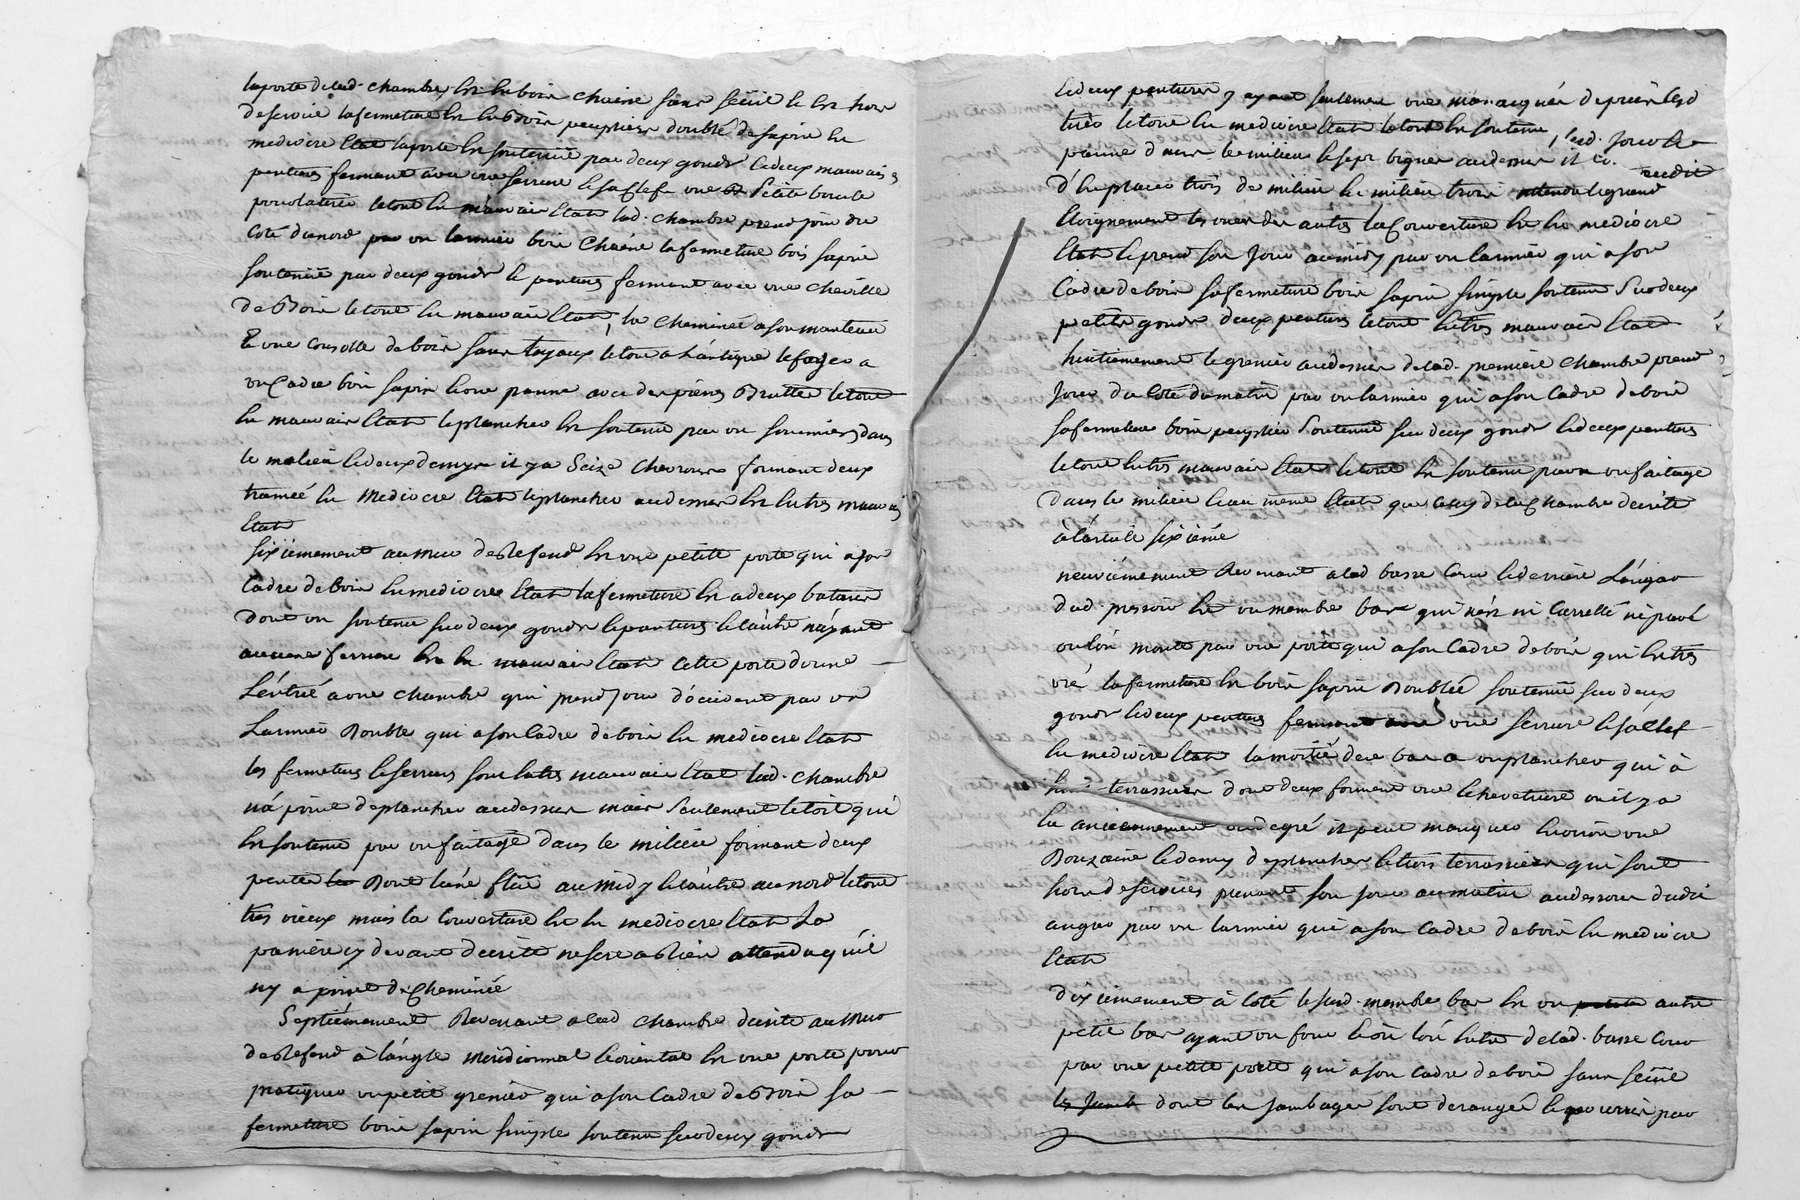 laporte delad. chambre, Est En boie chaine sans seüil le En hors
deservice lafermeture En En Boie peuplier doublé desapin En
mediocre Etat laporte En soutenüe par deux gonds ledeux mauvaises
pentures fermant avec une serrure lesaclef une Petite boucle
pourlatirer letout En mauvais Etat lad. chambre prend jour du
coté dunord par un larmier bois Chaéne lafermeture bois sapin
soutenüe par deux gonds le pentures fermant avec une cheville
deBois letout En mauvais Etat, la Cheminée asonmanteau
E une consolle debois sans tuyaux letout a L'antique lefoyer a
un Cadre bois sapin avec des piéres Brutter letout
En mauvais Etat leplancher En soutenu par un sommier dans
le milieu ledeuxdemy il ya Seize Chevrons formant deux
tramée En Mediocre Etat leplancher audessus En Entres mauvais
Etat
Sixiémement aumur deRefend En une petite porte qui a son
Cadre deBois En mediocre Etat lafermeture En adeux batans
Dont un soutenu sur deux gonds lepentures le l'autre n'ayant
aucune ferrure En En mauvais Etat Cette porte donne
L'entrée a une chambre qui prend jour d'occident par un
Larmier Double qui a son Cadre debois En mediocre Etat
les fermetures leferrures sont Entres mauvais Etat lad. chambre
n'a point deplancher audessus mais Seulement letoit qui
En soutenu par un faitage dans le milieu formant deux
pentes Dont l'une flüe au midy le l'autre au nord letout
trés vieux mais la Couverture En En mediocre Etat La
paniére cy devant decrite nesere aRien attendu qu'il
ny a point de Cheminée
Septiémement Revenant a lad chambre decrite au mur
deRefend à l'angle meridionnal le oriental En une porte pour
pratiquer un petit grenier qui a son Cadre deBois sa
fermeture bois sapin simple soutenu sur deux gonds
ledeux pentures y ayant seulement une
trés letout En mediocre Etat letout En soutenu,
panne dans le milieu audessus il
d'Enplacer trois de milieu le milieu trois attendu legrand
Eloignement les unes des autres la Couverture En En mediocre
Etat leprend son Jour aumidy par un larmier qui a son
Cadre debois safermeture bois sapin simple soutenu Sur deux
petits gonds deux pentures letout Entres mauvais Etat
huitiémement le grenier audessus delad. premiére chambre prend
Jour du Coté dumatin par un larmier qui a son Cadre debois
safermeture bois peuplier Soutenue sur deux gonds ledeux pentures
letout Entres mauvais Etat letout En soutenu par un faitage
dans le milieu le au même Etat que celuy delachambre decrite
a l'article sixiéme
neuviémement Revenant a lad basse Cour lederriére L'angar
dud. pressoir En un membre bas qui n'est ni Carrellé ni pavé
ou l'on monte par une porte qui a son Cadre debois qui Entres
usé lafermeture En bois sapin Doublée soutenüe sur deux
gonds ledeux pentures fermant avec une serrure lesaclef
En mediocre Etat la moitié dece bas a un plancher qui à
terrassier dont deux forment une Echevetriere ou il y a
Eu anciennement un degré il peut manquer Environ une
Douzaine ledemy deplancher letrois terrassier qui sont
hors deservices prenant son jour aumatin audessous dudit
angar par un larmier qui a son Cadre debois En mediocre
Etat
dixiémement à Coté le sud. membre bas En un autre
petit bas ayant un four le ou l'on Entre delad. basse Cour
par une petite porte qui a son Cadre debois sans seüil
dont les Jambages sont derangés par